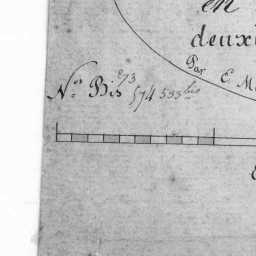 en
deuxi
Par E. M
Nos Bis 573
574 533 bis